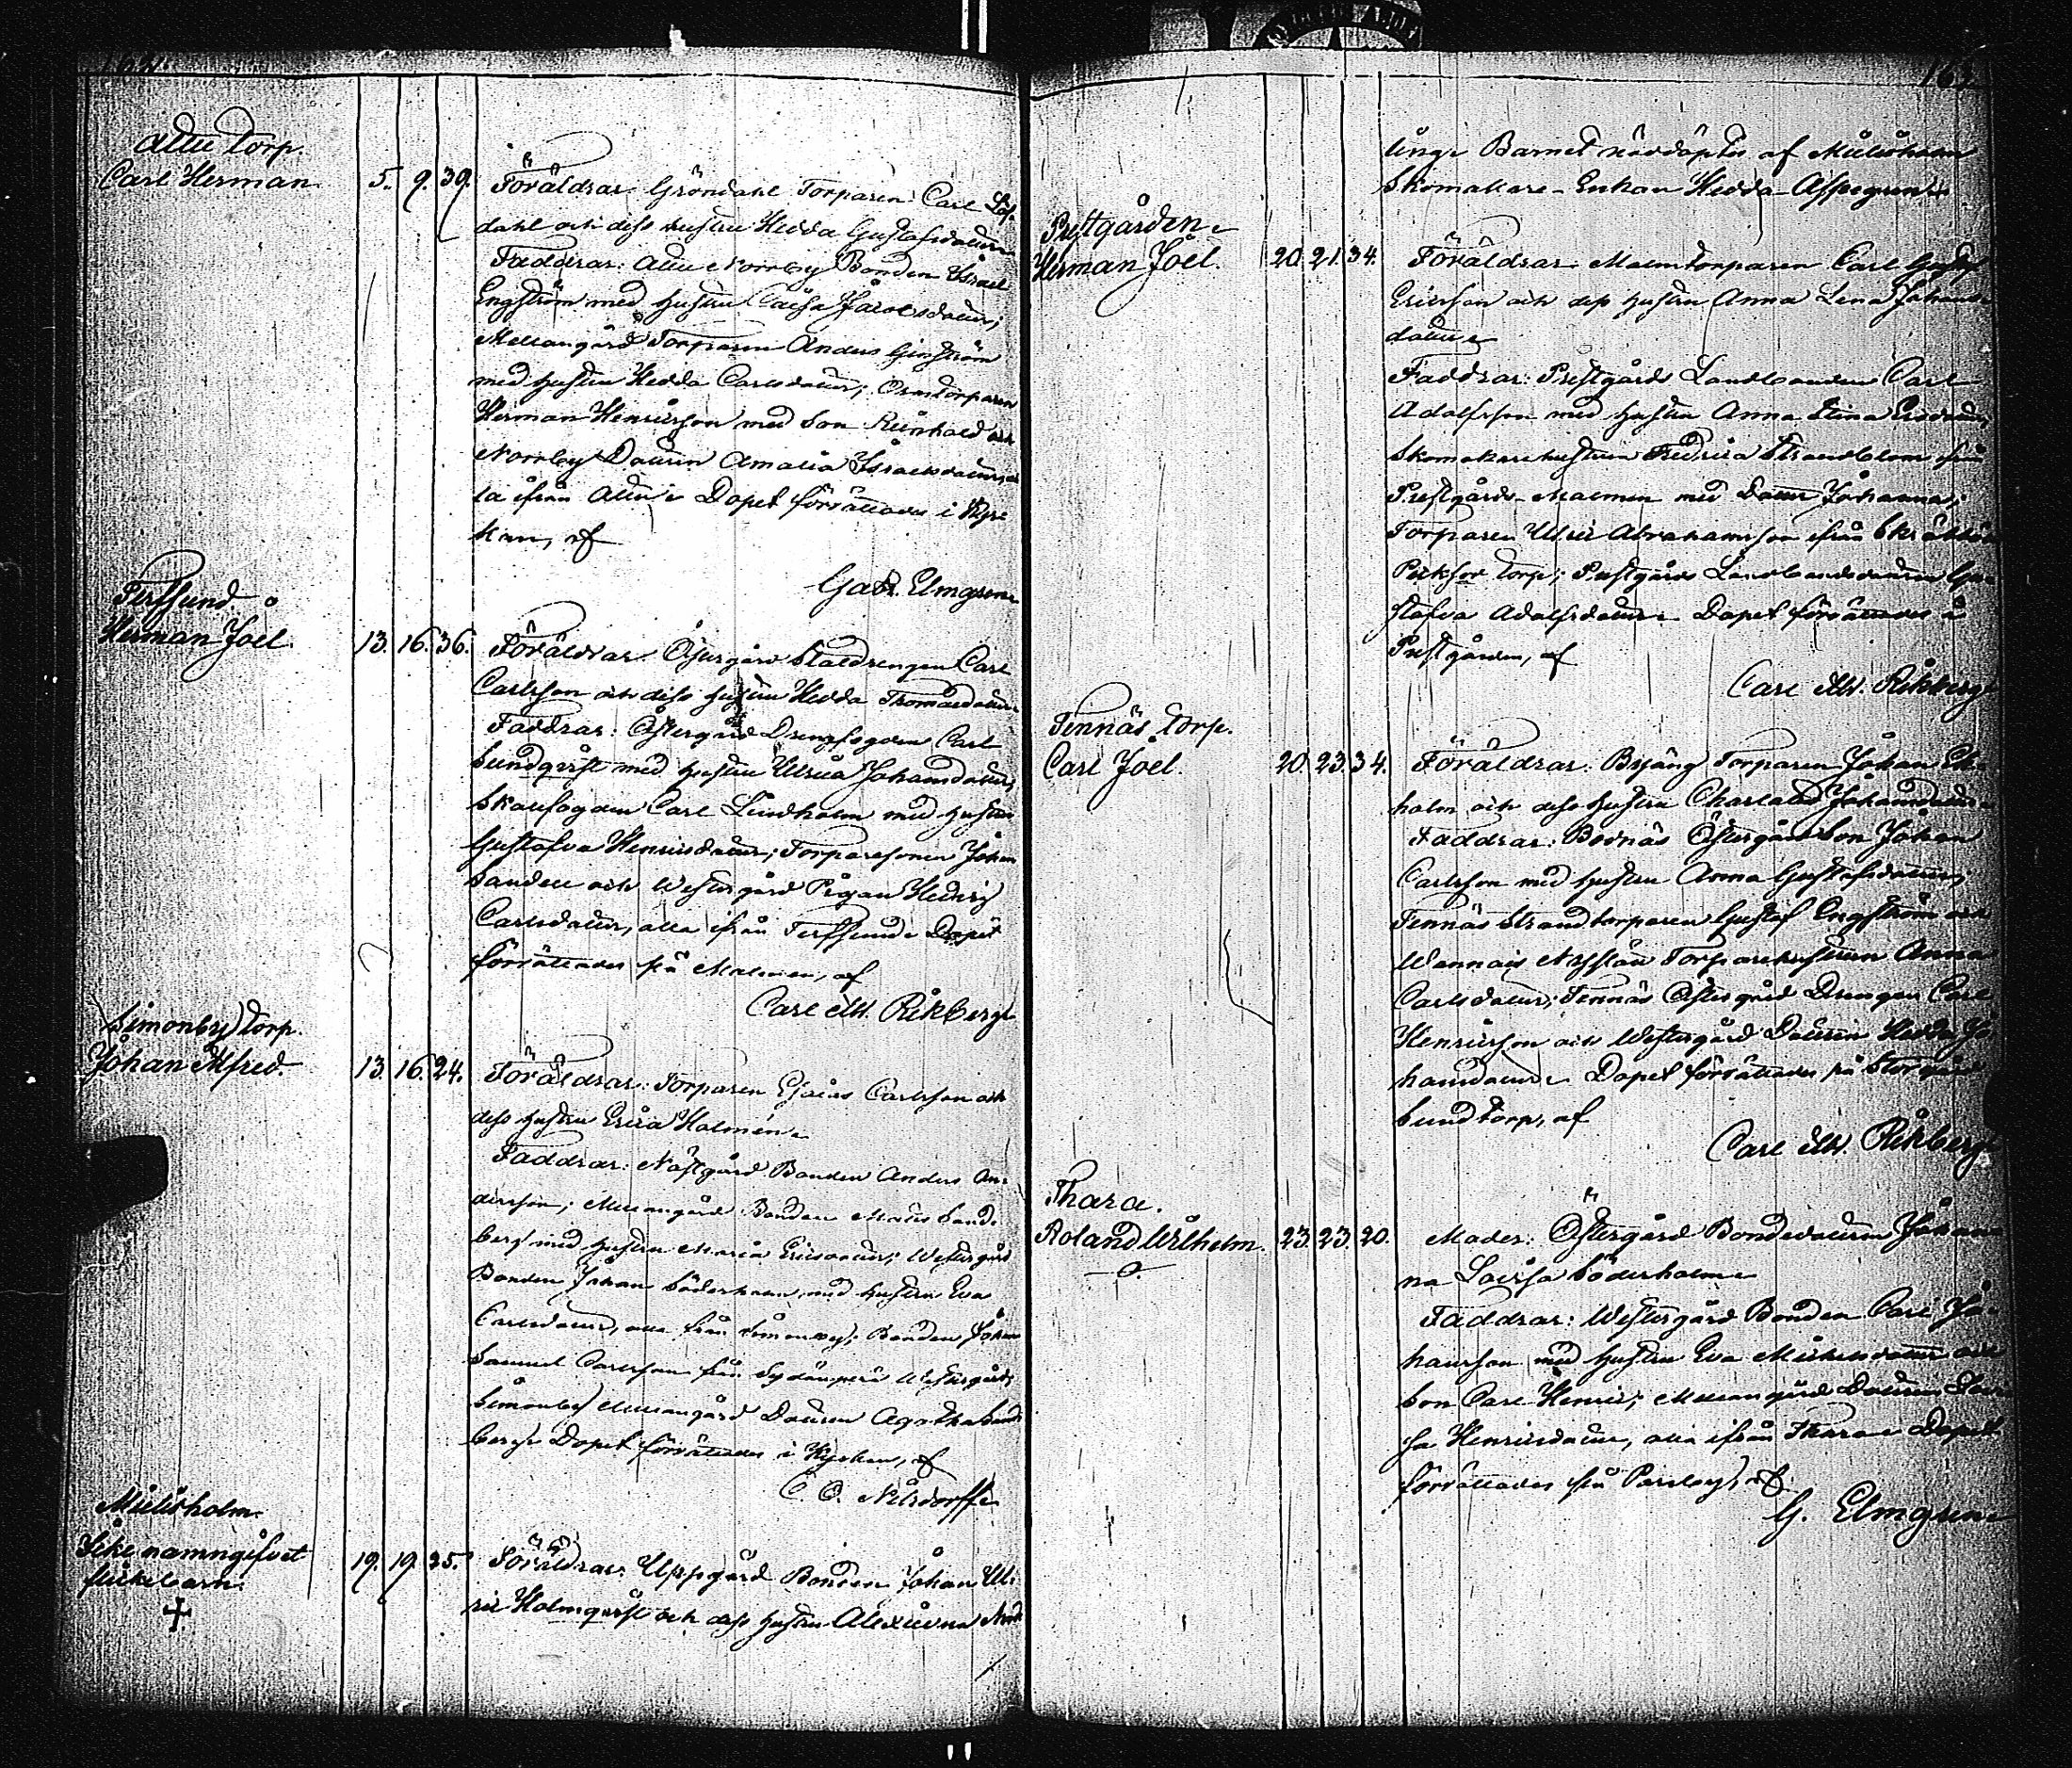 162.
Attu torp.
Carl Herman. 5. 9. 39. Föräldrar: Gröndahl Torparen Carl Löf-
dahl och dess hustru Hedda Gustafsdotter
Faddrar: Attu Norrby Bonden Israel
Engström med hustru Caisa Jacobsdotter;
Mellangård Torparen Anders Genström
med hustru Hedda Carlsdotter; Ormtorparen
Herman Henricsson med Son Reinhold och
Norrby Dottren Amalia Israelsdotter, al-
la ifrån Attu. Dopet förrättades i Kyr-
kan, af
Gabr. Elmgren
Terfsund
Herman Joel. 13. 16. 36. Föräldrar: Östergård Stalldrengen Carl
Carlsson och dess hustru Hedda Thomasdotter
Faddrar: Östergård Drengfogden Carl
Sundqvist med hustru Ulrica Johansdotter,
Skallfogden Carl Lindholm med hustru
Gustafva Henricsdotter; Torparesonen Johan
Sandell och Westergård Pigan Hedvig
Carlsdotter, alla ifrån Terfsund. Dopet
förrättades på Malmen, af
Carl M. Rikberg
Simonby torp.
Johan Alfred. 13. 16. 24. Föräldrar: Torparen Esaias Carlsson och
dess hustru Erica Holmén.
Faddrar: Näsgård Bonden Anders An-
dersson; Mellangård Bonden Mats Sand-
berg med hustru Maria Ericsdotter; Westergård
Bonden Johan Söderholm med hustru Eva
Carlsdotter, alla från Simonby; Bonden Johan
Samuel Carlsson från Sydänperä Westergård;
Simonby Mellangård Dottren Agatha Sand-
berg. Dopet förrättades i Kyrkan, af
C. O. Nilsdorff
Mielisholm.
Icke namngifvet 19. 19. 35. Föräldrar: Uppgård Bonden Johan Ul-
flickebarn. ric Holmqvist och dess hustru Alexandra
163
ling. Barnet nöddöptes af Mielisholm
Skomakare-Enkan Hedda Aspegren
Prestgården
Herman Joel. 20. 21. 34. Föräldrar: Malmtorparen Carl Gustaf
Ericsson och dess hustru Anna Lena Johans-
dotter
Faddrar: Prestgårds Landbonden Carl
Adolfsson med hustru Anna Stina
Skomakarehustrun Fredrica Strandblom från
Prestgårds-Malmen med Dotter Johanna;
Torparen Ulric Abrahamsson ifrån
torp; Prestgårds Landbondedottren Gu-
stafva Adolfsdotter. Dopet förrättades å
Prestgården, af
Carl M. Rikberg
Tennäs torp.
Carl Joel. 20. 23. 34. Föräldrar: Byäng Torparen Johan Ek-
holm och dess hustru Charlotta Johansdotter
Faddrar: Bodnäs Östergård Son Johan
Carlsson med hustru Anna Gustafsdotter,
Tennäs Strandtorparen Gustaf Engström och
Torparehustrun Anna
Carlsdotter; Tennäs Östergård Drengen Carl
Henricsson och Westergård Dottren Hedda Jo-
hansdotter. Dopet förrättades på Storgård
Sundtorp, af
Carl M. Rikberg
Thara.
Roland Wilhelm. 23. 23. 20. Moder: Östergård Bondedottren Johan-
na Lovisa Söderholm
Faddrar: Westergård Bonden Carl Jo-
hansson med hustru Eva Michelsdotter och
Son Carl Henric; Mellangård Dottren
sa Henricsdotter, alla ifrån Thara. Dopet
förrättades på Parsby, af
G. Elmgren